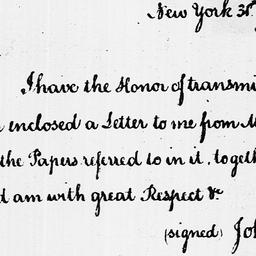 New York 31
I have the Honor of transmi
enclosed a Letter to me from
the Papers referred to in it, togeth
d am with great Respect &c
(signed) Joh